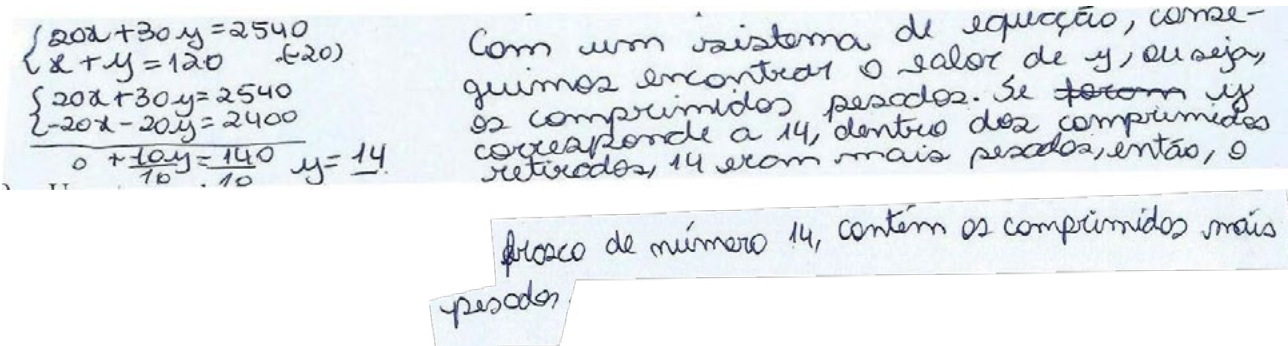 {20x+30y=2540
{x+y=120 (-20)
{20x+30y=2540
{-20x-20y=2400
0 + 10y/10 = 140/10 y=14.
Com um sistema de equação, conse-
guimos encontrar o valor de y, ou seja,
os comprimidos pesados. Se foram y
corresponde a 14, dentro dos comprimidos
retirados, 14 eram mais pesados, então, o
frasco de número 14, contém os comprimidos mais
pesados.